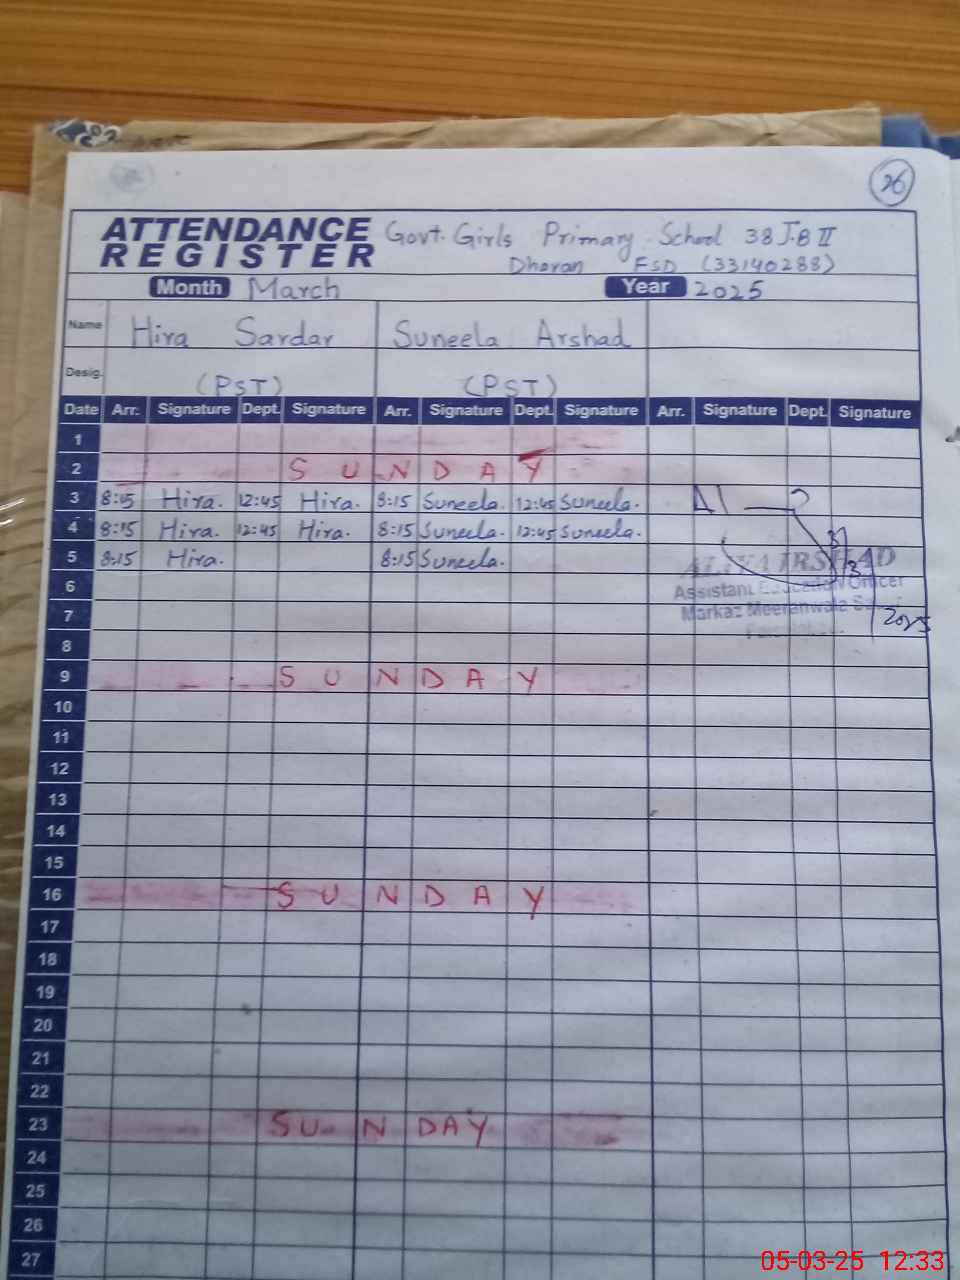 26
ATTENDANCE REGISTER Govt. Girls Primary School 38 J.B II
Dharan FSD (33140288)
Month March Year 2025
Name Hira Sardar Suneela Arshad
Desig. (PST) (PST)
Date Arr. Signature Dept. Signature Arr. Signature Dept. Signature Arr. Signature Dept. Signature
1
2 SUNDAY
3 8:15 Hira. 12:45 Hira. 8:15 Suneela. 12:45 Suneela.
4 8:15 Hira. 12:45 Hira. 8:15 Suneela. 12:45 Suneela.
5 8:15 Hira. 8:15 Suneela.
ALIYA IRSHAD
6
Assistant Education Officer
7
Markaz Meeranwala
2025
8
9 SUNDAY
10
11
12
13
14
15
16 SUNDAY
17
18
19
20
21
22
23 SUNDAY
24
25
26
27
05-03-25 12:33